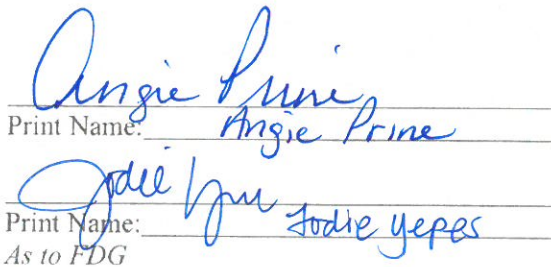 Angie Prine
Print Name: Angie Prine
Jodie
Print Name: Jodie Yepes
As to FDG